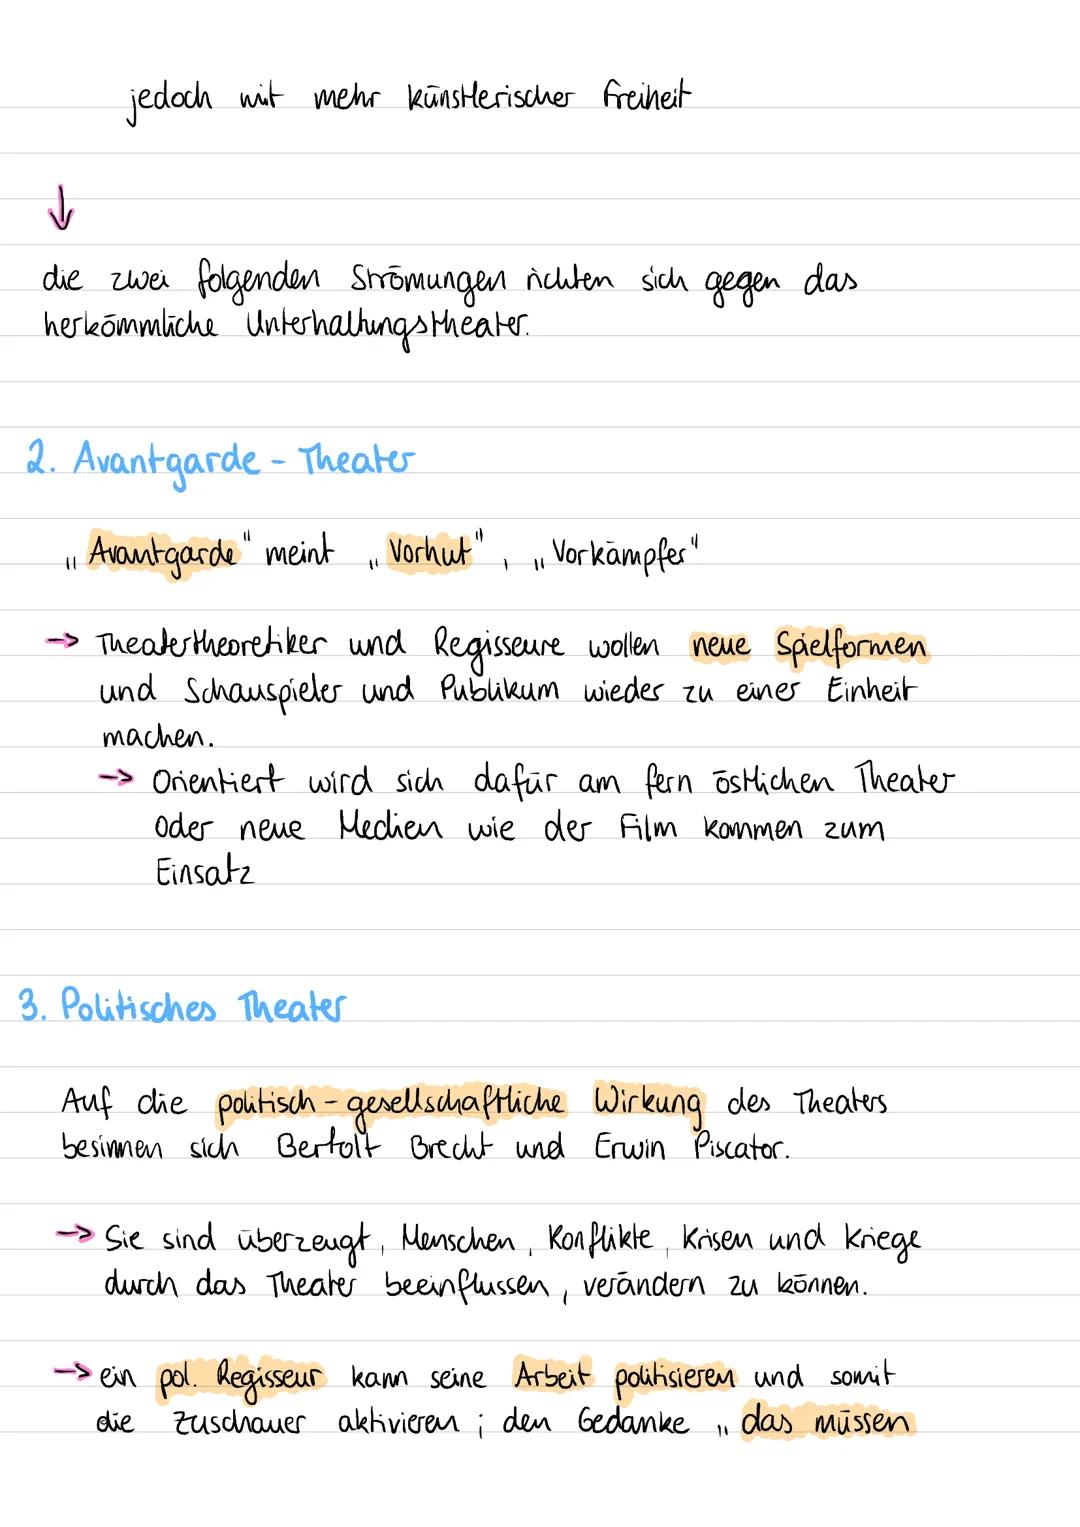 jedoch mit mehr künstlerischer Freiheit
↓
die zwei folgenden Strömungen richten sich gegen das
herkömmliche Unterhaltungstheater.
2. Avantgarde - Theater
„Avantgarde" meint „Vorhut", „Vorkämpfer"
-> Theatertheoretiker und Regisseure wollen neue Spielformen
und Schauspieler und Publikum wieder zu einer Einheit
machen.
-> Orientiert wird sich dafür am fern östlichen Theater
oder neue Medien wie der Film kommen zum
Einsatz
3. Politisches Theater
Auf die politisch-gesellschaftliche Wirkung des Theaters
besinnen sich Bertolt Brecht und Erwin Piscator.
-> Sie sind überzeugt, Menschen, Konflikte, Krisen und Kriege
durch das Theater beeinflussen, verändern zu können.
-> ein pol. Regisseur kann seine Arbeit politisieren und somit
die Zuschauer aktivieren; den Gedanke „das müssen